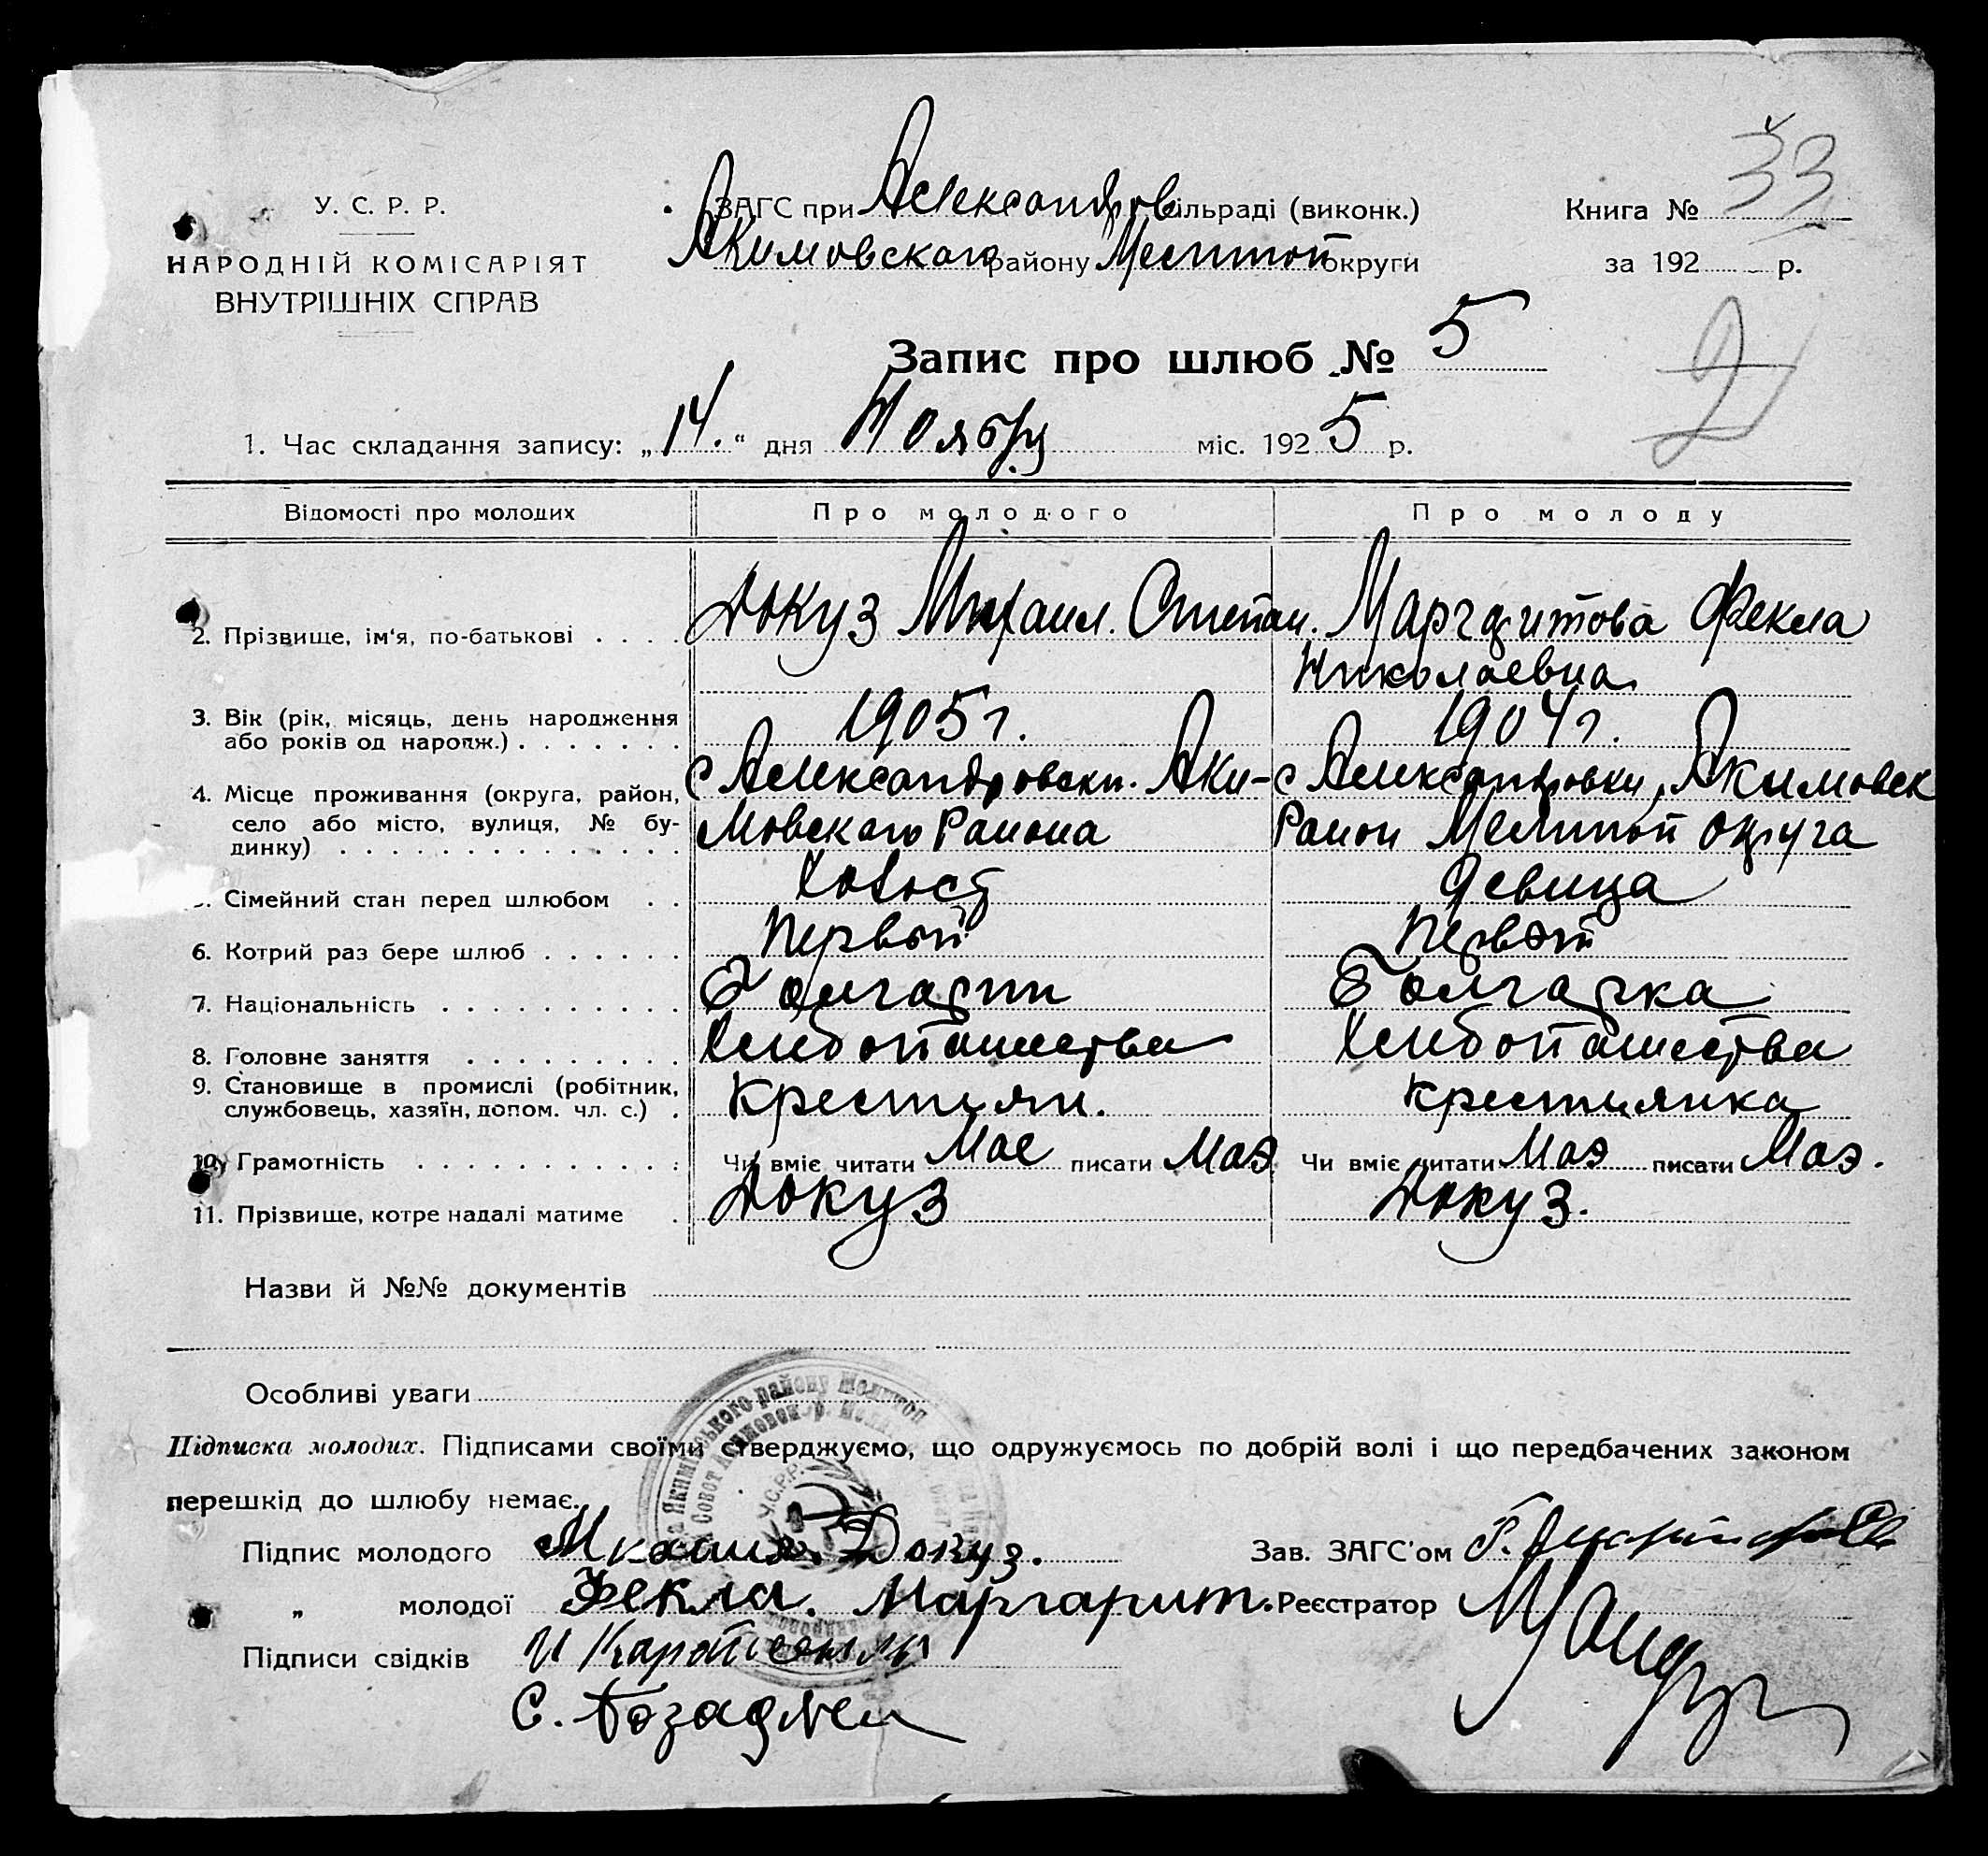 У. С. Р. Р.
НАРОДНІЙ КОМІСАРІЯТ
ВНУТРІШНІХ СПРАВ
ЗАГС при Александров сільраді (виконк.)
Акимовского району Мелитоп округи
Книга № 33
за 192 р.
Запис про шлюб № 5
2
1. Час складання запису: „14.“ дня Ноября міс. 1925 р.
Відомості про молодих Про молодого Про молоду
2. Прізвище, ім'я, по-батькові Докуз Михаил. Степан. Маргаритова Фекла
Николаевна
3. Вік (рік, місяць, день народження
або років од народж.) 1905 г. 1904 г.
4. Місце проживання (округа, район,
село або місто, вулиця, № бу-
динку)
с Александровки. Аки-
мовского Района
с Александровки, Акимовск
Район Мелитоп округа
Сімейний стан перед шлюбом Холост Девица
6. Котрий раз бере шлюб Первый Первый
7. Національність Болгарин Болгарка
8. Головне заняття Хлебопашества Хлебопашества
9. Становище в промислі (робітник,
службовець, хазяїн, допом. чл. с.) Крестьян. Крестьянка
10. Грамотність Чи вміє читати Мае писати Маэ Чи вміє читати Маэ писати Маэ.
11. Прізвище, котре надалі матиме Докуз Докуз.
Назви й №№ документів
Особливі уваги
Підписка молодих. Підписами своїми стверджуємо, що одружуємось по добрій волі і що передбачених законом
перешкід до шлюбу немає.
У.С.Р.Р.
Підпис молодого Михаил Докуз. Зав. ЗАГС'ом
„ молодої Фекла. Маргарит. Реєстратор
Підписи свідків И
С. Бозаджи